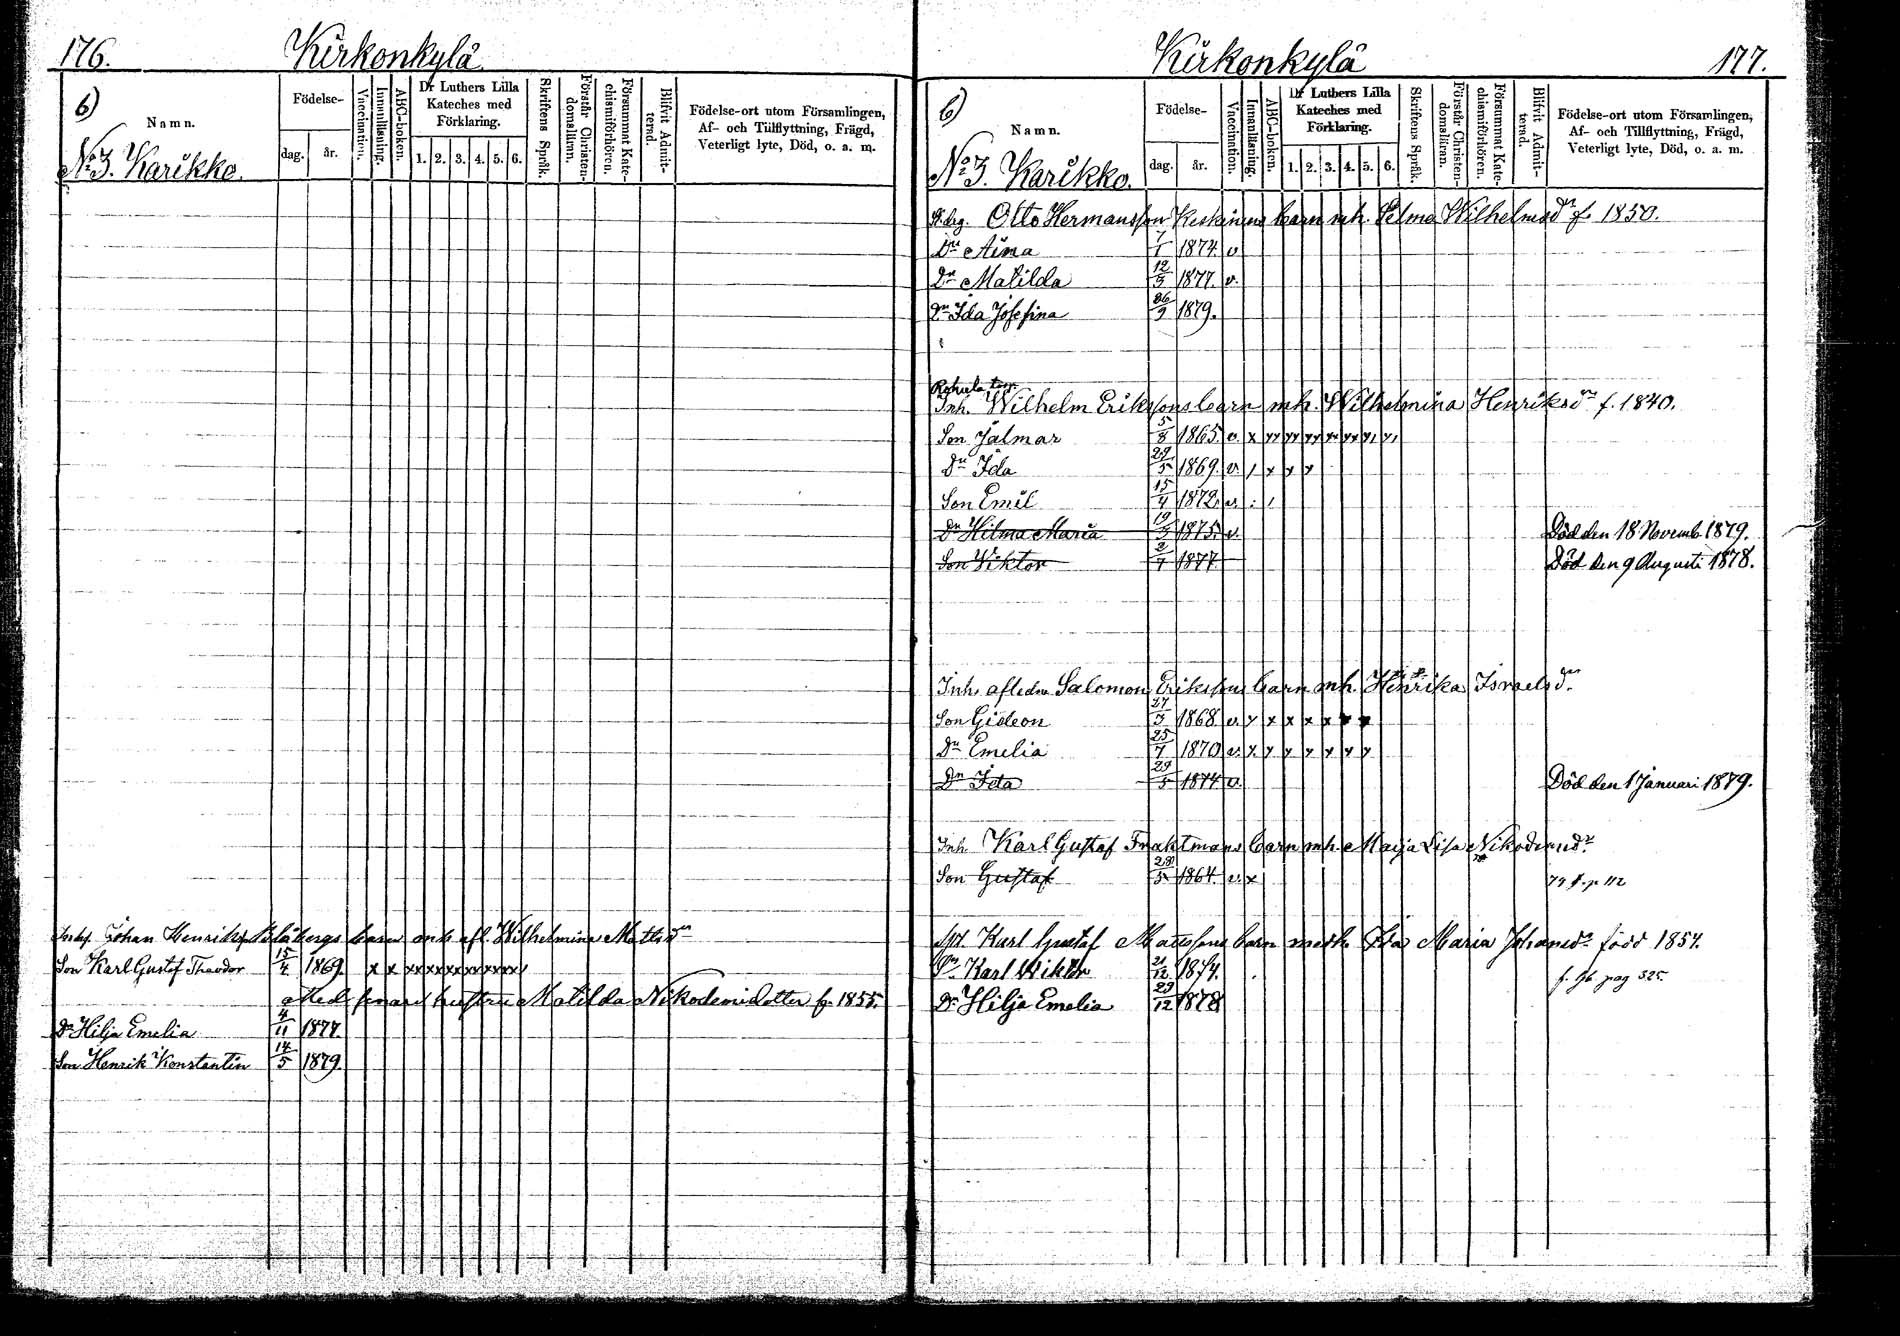 176. Kirkonkylä
6)
Namn.
No 3. Karikko.
Födelse-
dag. år.
Vaccination.
Innanläsning.
ABC-boken.
Dr Luthers Lilla Kateches med Förklaring.
1. 2. 3. 4. 5. 6.
Skriftens Språk.
Förstår Christendomsläran.
Försummat Katechismiförhören.
Blifvit Admitterad.
Födelse-ort utom Församlingen,
Af- och Tillflyttning, Frägd,
Veterligt lyte, Död, o. a. m.
Johan Henrikss. Blåbergs barn mh afl. Wilhelmina Mattsdr
Son Karl Gustaf Theodor 15/4 1869. x x xx xx xx xx xx xx
Med senare hustru Matilda Nikodemidotter f. 1855.
Dr Hilja Emelia 4/11 1877.
Son Henrik Konstantin 14/5 1879.
Kirkonkylä 177.
6)
Namn.
No 3. Karikko.
Födelse-
dag. år.
Vaccination.
Innanläsning.
ABC-boken.
Dr Luthers Lilla Kateches med Förklaring.
1. 2. 3. 4. 5. 6.
Skriftens Språk.
Förstår Christendomsläran.
Försummat Katechismiförhören.
Blifvit Admitterad.
Födelse-ort utom Församlingen,
Af- och Tillflyttning, Frägd,
Veterligt lyte, Död, o. a. m.
Otto Hermansson Keskinens barn mh. Selma Wilhelmsdr f. 1850.
Dr Aina 7/1 1874 v
Dr Matilda 12/3 1877. v.
Dr Ida Josefina 26/9 1879.
Inh. Wilhelm Erikssons barn mh. Wilhelmina Henriksdr f. 1840.
Son Jalmar 5/8 1865. v. x
Dr Ida 29/5 1869. v. / x x x
Son Emil 15/4 1872. v.
Dr Hilma Maria 19/3 1875. v. Död den 18 Novemb. 1879.
Son Viktor 2/7 1877 Död den 9 Augusti 1878.
Inh. aflidne Salomon Erikssons barn mh. Henrika Israelsdr
Son Gideon 27/3 1868 v. x x x x x
Dr Emelia 25/7 1870 v. x x x x x x x
Dr Ida 29/5 1874 v. Död den 1 Januari 1879.
Inh. Karl Gustaf Fraktmans barn mh. Maja Lisa Nikodemidr
Son Gustaf 28/5 1864. v. x 79 f. p 112
Karl Gustaf Mattssons barn med h. Ida Maria Johansdr född 1854.
Karl Wiktor 21/12 1874. f. Gb pag 325.
Dr Hilja Emelia 29/12 1878